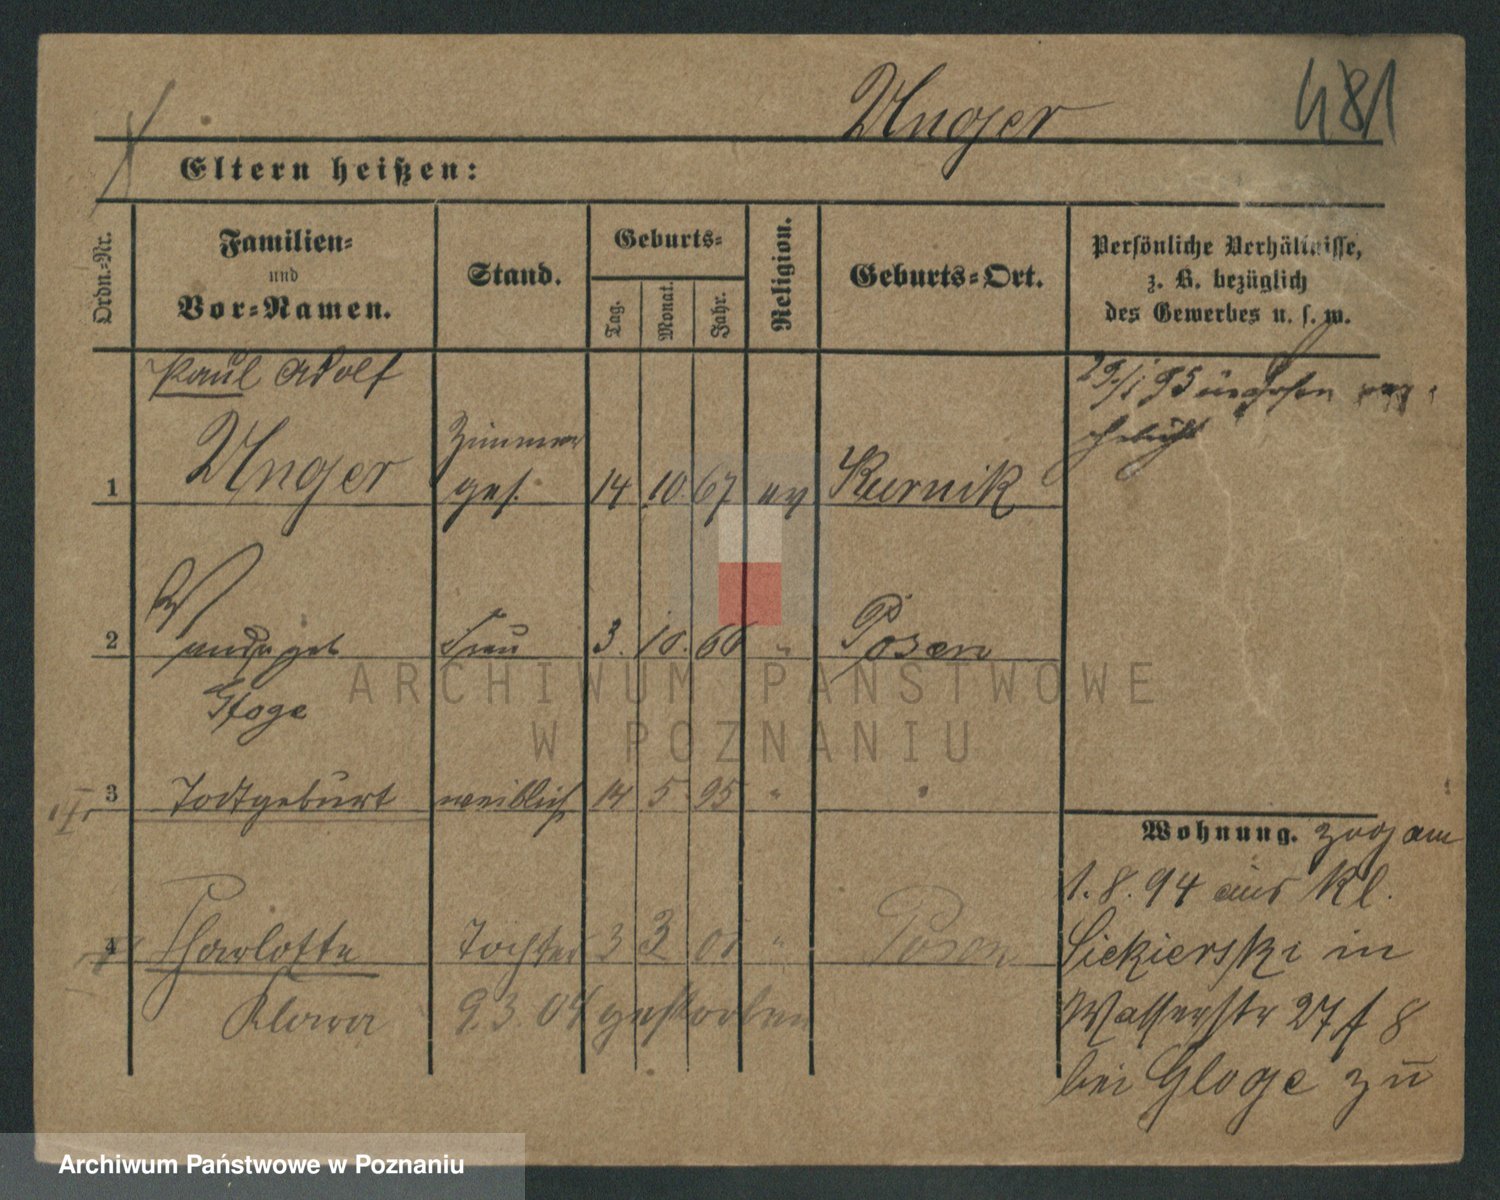 Unger 481
Eltern heißen:
Ordn.-Nr.
Familien-
und
Vor-Namen.
Stand.
Geburts-
Tag.
Monat.
Jahr.
Religion.
Geburts-Ort.
Persönliche Verhältnisse,
z. B. bezüglich
des Gewerbes u. s. w.
Paul Adolf
Unger
Zimmer
ges.
1 14 10. 67 ev Kurnik
29/1 95
2 Wanda geb Frau 3. 10. 66 " Posen
Gloge
3 Todtgeburt weiblich 14 5 95 " "
Wohnung. zog am
1.8.94 aus Kl.
4 Charlotte Tochter 3 3 " Posen
Siekierki in
Klara 9.3.04 gestorben
Wasserstr 27 8
bei Gloge zu
ARCHIWUM PAŃSTWOWE
W POZNANIU
Archiwum Państwowe w Poznaniu